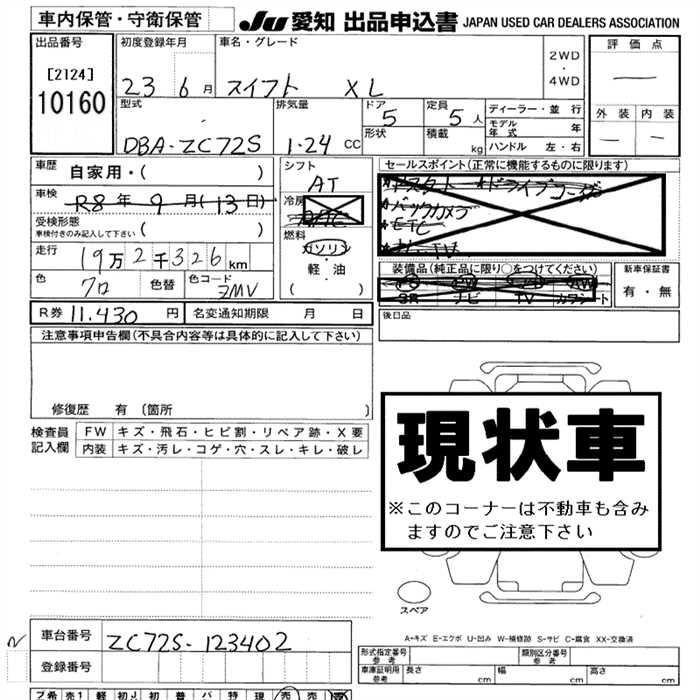 車内保管・守衛保管
JU 愛知 出品申込書 JAPAN USED CAR DEALERS ASSOCIATION
出品番号
[2124]
10160
初度登録年月
23 6 月
車名・グレード
スイフト XL
2WD
・
4WD
評 価 点
—
外 装 内 装
— —
型式
DBA-ZC72S
排気量
1.24 CC
ドア
5
形状
定員
5 人
積載
kg
ディーラー・並 行
モデル年式 年
ハンドル 左・右
車歴 自家用・( )
車検 R8 年 9 月 (13 日)
受検形態
車検付きのみ記入して下さい ( )
走行 19万2千326km
色 クロ 色替 色コード ZMV
シフト
AT
冷房
AAC
燃料
ガソリン
・
軽・油
( )
セールスポイント(正常に機能するものに限ります)
★スタート ★ドライブレコーダー
★バックカメラ
★ETC
装備品(純正品に限り○をつけてください)
PS PW AB AW
SR ナビ TV カワシート
新車保証書
有・無
R券 11.430 円 名変通知期限 月 日
後日品
注意事項申告欄(不具合内容等は具体的に記入して下さい)
修復歴 有 〔箇所 〕
検査員記入欄
FW キズ・飛石・ヒビ割・リペア跡・X要
内装 キズ・汚レ・コゲ・穴・スレ・キレ・破レ
現状車
※このコーナーは不動車も含み
ますのでご注意下さい
スペア
A-キズ E-エクボ U-凹み W-補修跡 S-サビ C-腐食 XX-交換済
車台番号 ZC72S-123402
登録番号
形式指定番号
参考
類別区分番号
参考
車庫証明用
参考
長さ cm 幅 cm 高さ cm